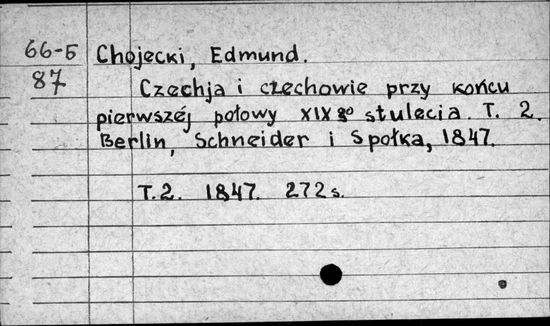 66-5
87
Chojecki, Edmund.
Czechja i czechowie przy końcu
pierwszéj połowy XIX go stulecia. T. 2.
Berlin, Schneider i Społka, 1847.
T.2. 1847. 272 s.